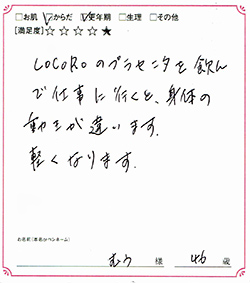 □お肌 ☑からだ ☑更年期 □生理 □その他
[満足度]☆☆☆☆★
LOCOROのプラセンタを飲ん
で仕事に行くと、身体の
動きが違います。
軽くなります。
お名前(本名orペンネーム)
むう 様 46 歳